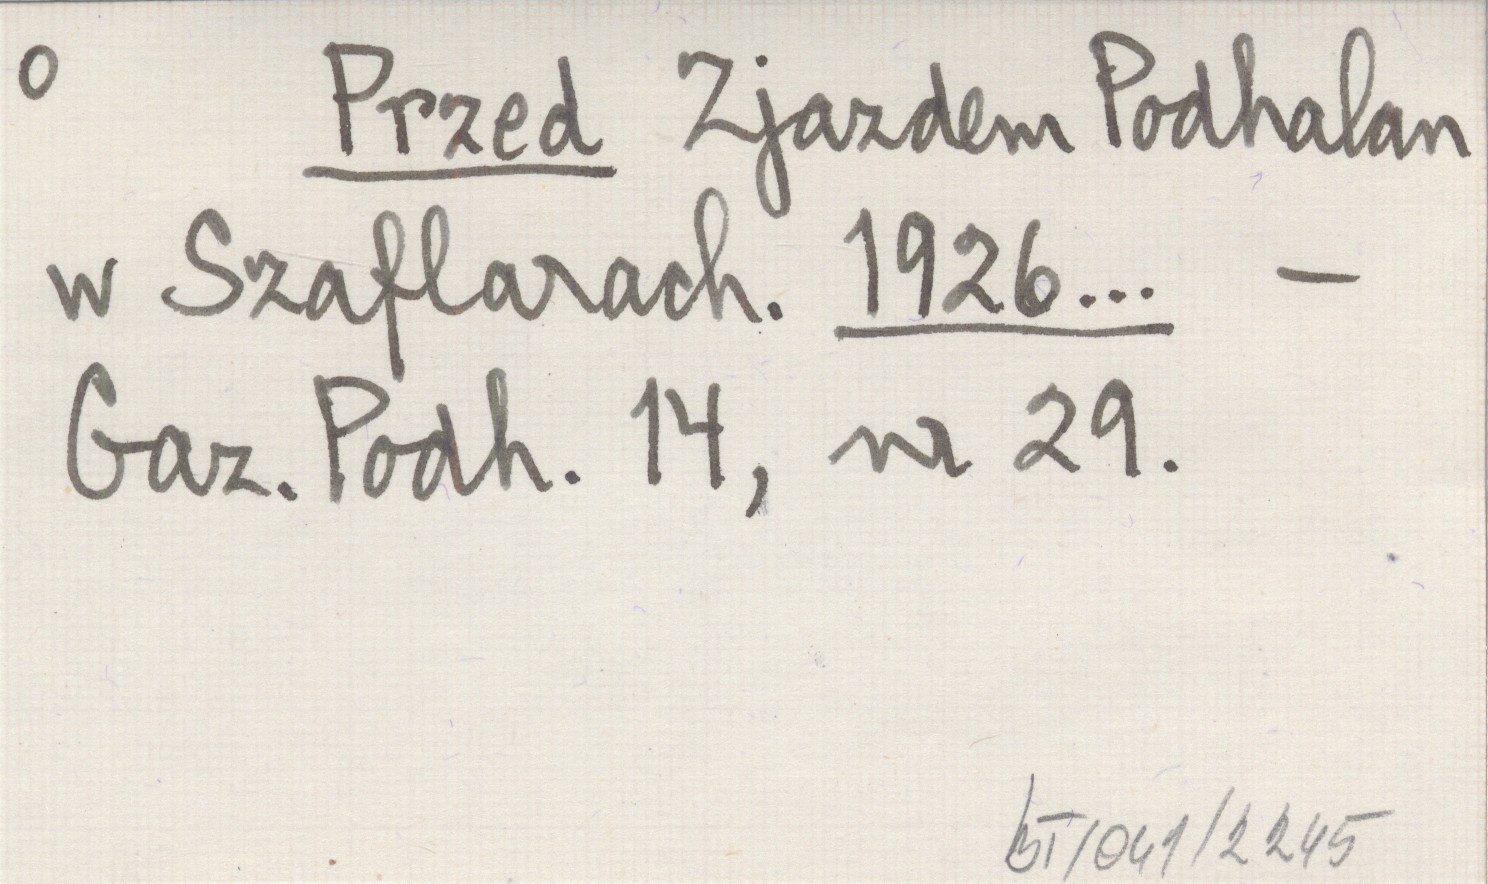 o Przed Zjazdem Podhalan
w Szaflarach. 1926... —
Gaz. Podh. 14, nr 29.
BT/041/2245